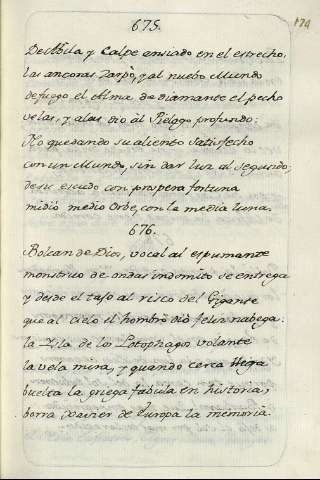 675.
174
De Abila y Calpe ansiado en el estrecho,
las ancoras zarpò, y al nuebo Mundo
de fuego el Alma de diamante el pecho
velas, y alas dio al Pielago profundo:
No quedando su aliento satisfecho
con un Mundo, sin dar luz al segundo;
de su escudo con prospera fortuna
midiò medio Orbe, con la media luna.
676.
Bolcan de Dios, vocal al espumante
monstruo de ondas indomito se entrega
y desde el tajo al risco del Gigante
que al cielo el hombro diò feliz nabega:
la Isla de los Lotophagos volante
la vela mira, y quando cerca llega
buelta la griega fabula en historia,
borra Xavier de Europa la memoria.